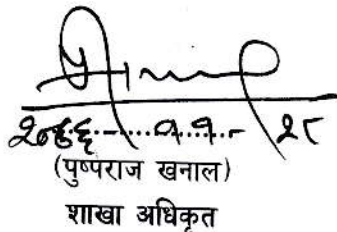 २०७६......११-२८
(पुष्पराज खनाल)
शाखा अधिकृत